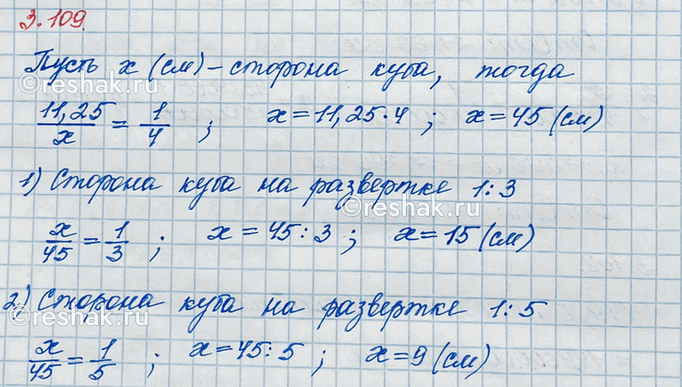 3.109.
Пусть x (см) – сторона куба, тогда
11,25/x = 1/4 ; x = 11,25·4 ; x = 45 (см)
1) Сторона куба на развертке 1:3
x/45 = 1/3 ; x = 45:3 ; x = 15 (см)
2) Сторона куба на развертке 1:5
x/45 = 1/5 ; x = 45:5 ; x = 9 (см)
©reshak.ru
©reshak.ru
©reshak.ru
©reshak.ru